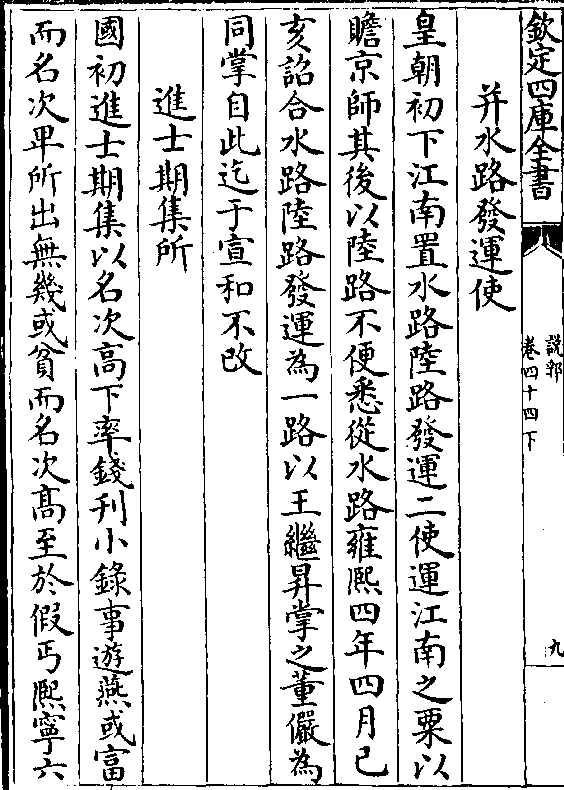 欽定四庫全書
說郛
卷四十四下
九
并水路發運使
皇朝初下江南置水路陸路發運二使運江南之粟以
贍京師其後以陸路不便悉從水路雍熙四年四月己
亥詔合水路陸路發運為一路以王繼昇掌之董儼為
同掌自此迄于宣和不改
進士期集所
國初進士期集以名次高下率錢刋小錄事遊燕或富
而名次卑所出無幾或貧而名次髙至於假丐熙寧六